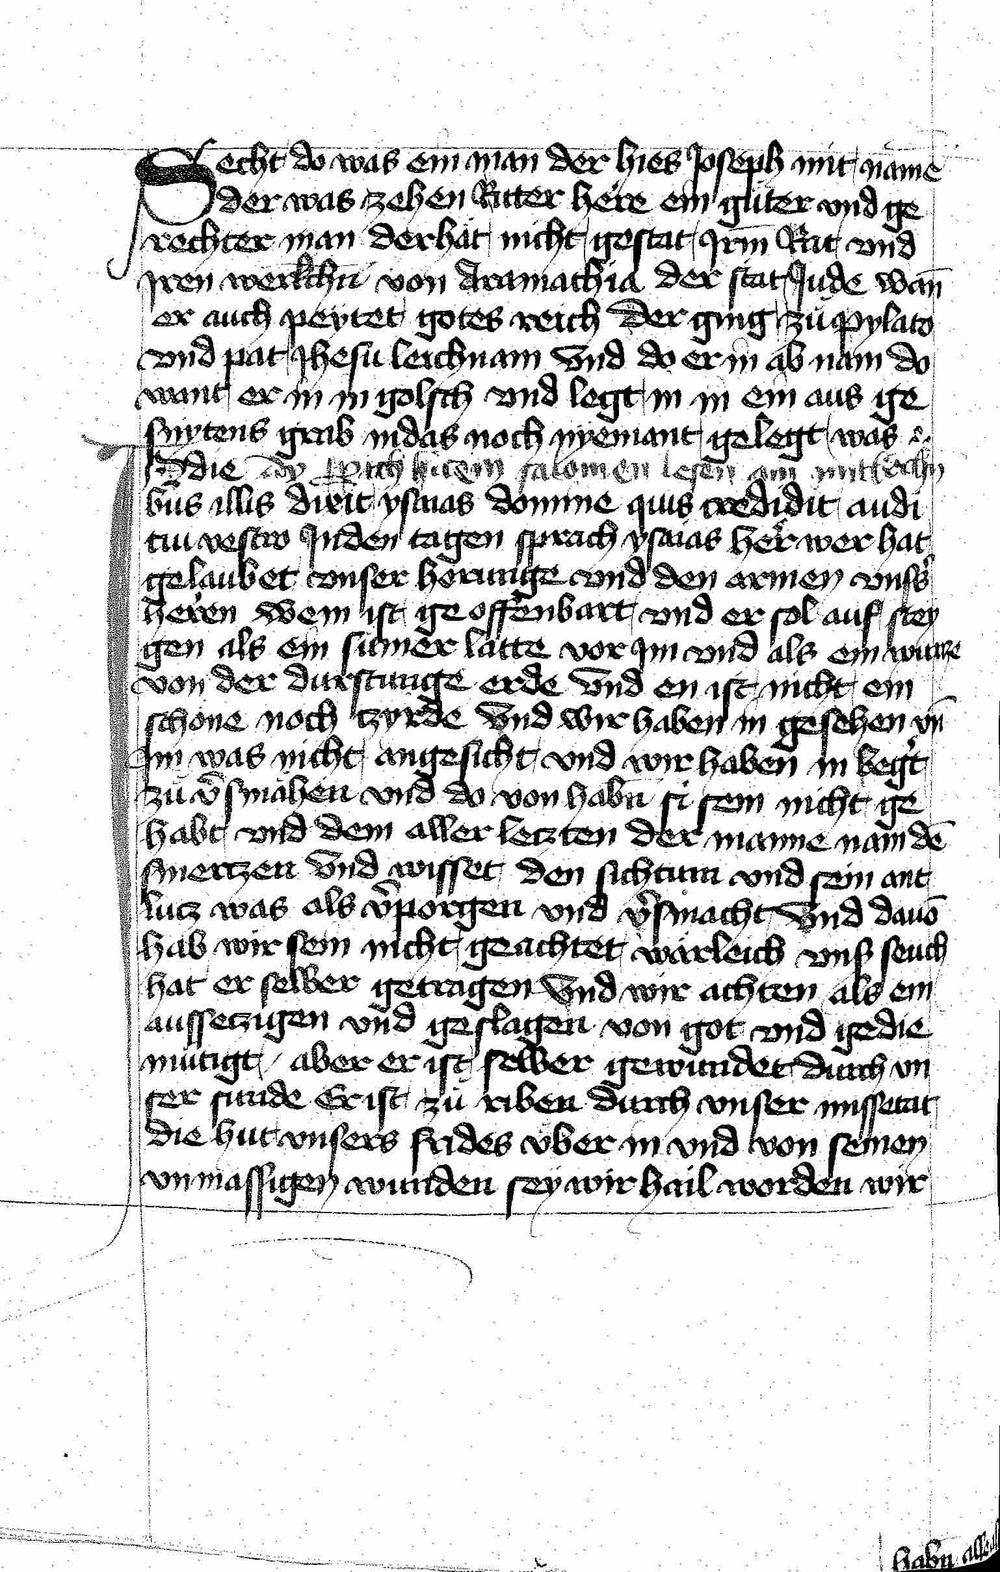 Secht do was ein man der hies Joseph mit name
der was zehen Ritter here ein guter vnd ge
rechter man der hat nicht gestat Irm Rat vnd
Iren werkchn von Aramathia der stat Jude wan̄
er auch peytet gotes reich Der ging zů Pylato
vnd pat Jhesu leichnam Vnd do er in ab nam do
want er in in golsch vnd legt in in ein aus ge
snytens grab in das noch nyemant gelegt was
In die
bus illis dixit ysaias domine quis credidit audi
tui vestro In den tagen sprach ysaias Her wer hat
gelaubet vnser horunge vnd den armen vnss̉
heren Wem ist ge offenbart vnd er sol auf stey
gen als ein sumer latte vor Im vnd als ein wurze
von der durstunge erde Vnd en ist nicht ein
schone noch tzyrde Vnd wir haben in gesehen vn̄
Im was nicht angesicht vnd wir haben in begt̉
zů v̉smahen vnd do von habn si sein nicht ge
habt vnd dem aller letzten der manne nam dē
smertzen Vnd wisset den sichtum vnd sein ant
lutz was als v̉porgen vnd v̉smacht Vnd dauō
hab wir sein nicht geachtet warleich vnß seuch
hat er selber getragen Vnd wir achten als ein
aussetzigen vnd geslagen von got vnd gedie
mutigt / aber er ist selber gewundet durch vn
ser sunde Er ist zů riben durch vnser missetat
die hut vnsers frides vber in vnd von seinen
vnmassigen wunden sey wir hail worden wir
habn alle